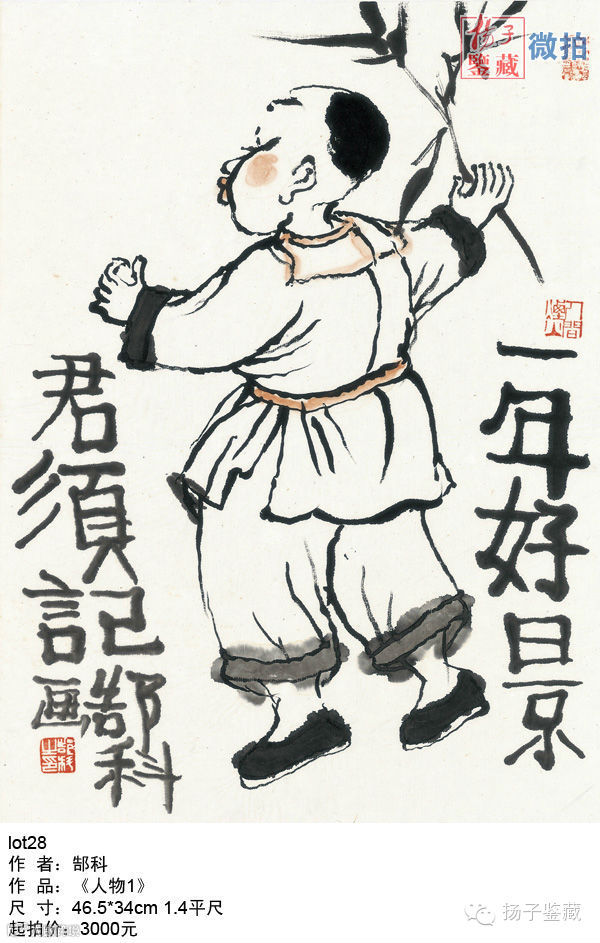 扬子
鑒藏
微拍
一年好景
君須記
郜科
画
郜科之印
lot28
作 者：郜科
作 品：《人物1》
尺 寸：46.5*34cm 1.4平尺
起拍价：3000元
扬子鉴藏